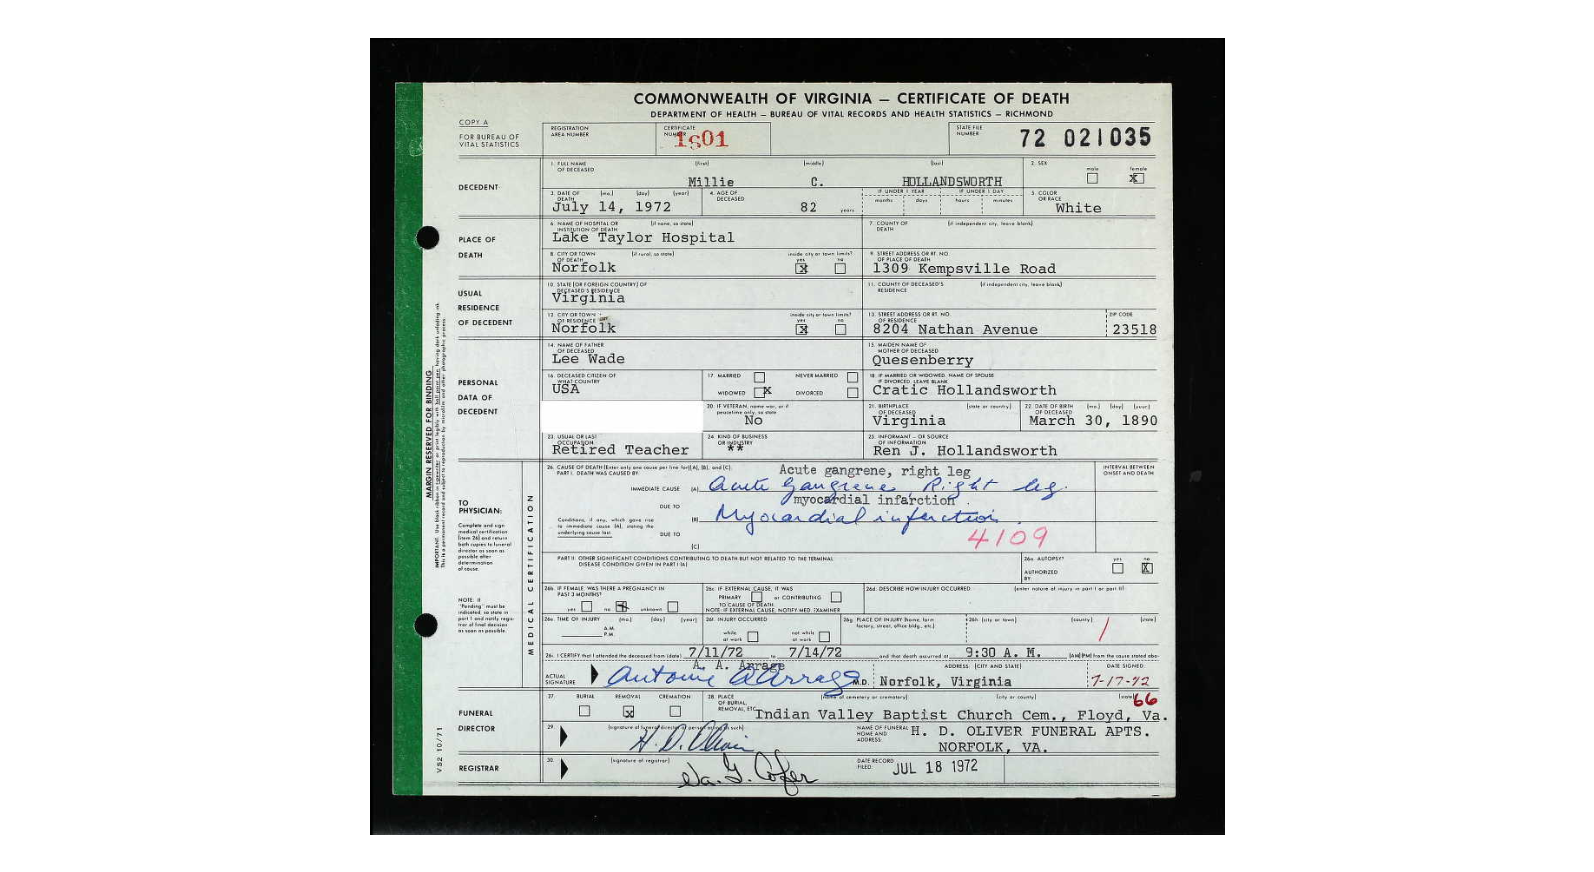 COMMONWEALTH OF VIRGINIA — CERTIFICATE OF DEATH
DEPARTMENT OF HEALTH — BUREAU OF VITAL RECORDS AND HEALTH STATISTICS — RICHMOND
COPY A
FOR BUREAU OF
VITAL STATISTICS
REGISTRATION
AREA NUMBER
CERTIFICATE
NUMBER
1601
STATE FILE
NUMBER
72 021035
DECEDENT
1. FULL NAME
OF DECEASED
(first) (middle) (last)
Millie C. HOLLANDSWORTH
2. SEX
male female
X
3. DATE OF
DEATH
(mo.) (day) (year)
July 14, 1972
4. AGE OF
DECEASED
82 years
IF UNDER 1 YEAR IF UNDER 1 DAY
months days hours minutes
5. COLOR
OR RACE
White
PLACE OF
DEATH
6. NAME OF HOSPITAL OR
INSTITUTION OF DEATH
(if none, so state)
Lake Taylor Hospital
7. COUNTY OF
DEATH
(if independent city, leave blank)
8. CITY OR TOWN
OF DEATH
(if rural, so state)
inside city or town limits?
yes no
Norfolk X
9. STREET ADDRESS OR RT. NO.
OF PLACE OF DEATH
1309 Kempsville Road
USUAL
RESIDENCE
OF DECEDENT
10. STATE (OR FOREIGN COUNTRY) OF
DECEASED'S RESIDENCE
Virginia
11. COUNTY OF DECEASED'S
RESIDENCE
(if independent city, leave blank)
12. CITY OR TOWN
OF RESIDENCE
inside city or town limits?
yes no
Norfolk X
13. STREET ADDRESS OR RT. NO.
OF RESIDENCE
8204 Nathan Avenue
ZIP CODE
23518
PERSONAL
DATA OF
DECEDENT
14. NAME OF FATHER
OF DECEASED
Lee Wade
15. MAIDEN NAME OF
MOTHER OF DECEASED
Quesenberry
16. DECEASED CITIZEN OF
WHAT COUNTRY
USA
17. MARRIED NEVER MARRIED
WIDOWED X DIVORCED
18. IF MARRIED OR WIDOWED, NAME OF SPOUSE
IF DIVORCED LEAVE BLANK
Cratic Hollandsworth
20. IF VETERAN, name war, or if
peacetime only, so state
No
21. BIRTHPLACE
OF DECEASED
(state or country)
Virginia
22. DATE OF BIRTH
OF DECEASED
(mo.) (day) (year)
March 30, 1890
23. USUAL OR LAST
OCCUPATION
Retired Teacher
24. KIND OF BUSINESS
OR INDUSTRY
**
25. INFORMANT - OR SOURCE
OF INFORMATION
Ren J. Hollandsworth
MARGIN RESERVED FOR BINDING
MEDICAL CERTIFICATION
TO
PHYSICIAN:
Complete and sign
medical certification
(item 26) and return
both copies to funeral
director as soon as
possible after
determination
of cause.
NOTE: If
"Pending" must be
indicated, so state in
part I and notify regis-
trar of final decision
as soon as possible.
26. CAUSE OF DEATH (Enter only one cause per line for (A), (B), and (C).
PART I. DEATH WAS CAUSED BY:
INTERVAL BETWEEN
ONSET AND DEATH
Acute gangrene, right leg
IMMEDIATE CAUSE (A) Acute Gangrene, Right leg.
myocardial infarction
DUE TO
Conditions, if any, which gave rise
to immediate cause (A), stating the
underlying cause last.
(B) Myocardial infarction.
DUE TO
(C)
4109
PART II. OTHER SIGNIFICANT CONDITIONS CONTRIBUTING TO DEATH BUT NOT RELATED TO THE TERMINAL
DISEASE CONDITION GIVEN IN PART I (A)
26a. AUTOPSY?
yes no
X
AUTHORIZED
BY
26b. IF FEMALE, WAS THERE A PREGNANCY IN
PAST 3 MONTHS?
yes no X unknown
26c. IF EXTERNAL CAUSE, IT WAS
PRIMARY or CONTRIBUTING
TO CAUSE OF DEATH
NOTE: IF EXTERNAL CAUSE, NOTIFY MED. EXAMINER
26d. DESCRIBE HOW INJURY OCCURRED
(enter nature of injury in part I or part II)
26e. TIME OF INJURY (mo.) (day) (year)
A.M.
P.M.
26f. INJURY OCCURRED
while
at work
not while
at work
26g. PLACE OF INJURY (home, farm
factory, street, office bldg., etc.)
26h. (city or town) (county) (state)
26i. I CERTIFY that I attended the deceased from (date) 7/11/72 to 7/14/72 and that death occurred at 9:30 A. M. (AM) (PM) from the cause stated above
A. A. Arrage
ACTUAL
SIGNATURE
Antoine A Arrage M.D.
ADDRESS: (CITY AND STATE)
Norfolk, Virginia
DATE SIGNED:
7-17-72
FUNERAL
DIRECTOR
27. BURIAL REMOVAL CREMATION
X
28. PLACE
OF BURIAL,
REMOVAL, ETC.
(name of cemetery or crematory) (city or county) (state)
66
Indian Valley Baptist Church Cem., Floyd, Va.
29.
H. D. Oliver
NAME OF FUNERAL
HOME AND
ADDRESS:
H. D. OLIVER FUNERAL APTS.
NORFOLK, VA.
REGISTRAR
30.
(signature of registrar)
DATE RECORD
FILED:
JUL 18 1972
VS2 10/71